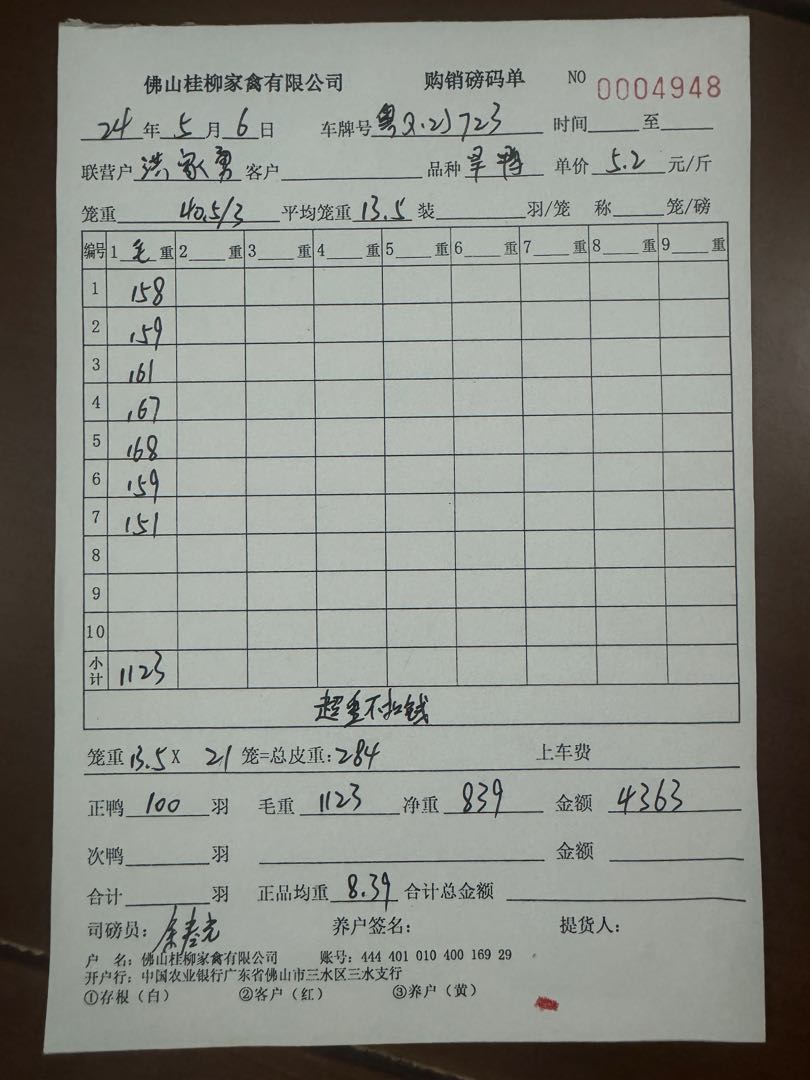 佛山桂柳家禽有限公司 购销磅码单 NO 0004948
24 年 5 月 6 日 车牌号 粤 723 时间 至
联营户 洪家勇 客户 品种 旱鸭 单价 5.2 元/斤
笼重 40.5/3 平均笼重 13.5 装 羽/笼 称 笼/磅
编号 1 毛 重 2 重 3 重 4 重 5 重 6 重 7 重 8 重 9 重
1 158
2 159
3 161
4 167
5 168
6 159
7 151
8
9
10
小计 1123
超重不扣钱
笼重 13.5 X 21 笼=总皮重: 284 上车费
正鸭 100 羽 毛重 1123 净重 839 金额 4363
次鸭 羽 金额
合计 羽 正品均重 8.39 合计总金额
司磅员: 养户签名: 提货人:
户 名: 佛山桂柳家禽有限公司 账号: 444 401 010 400 169 29
开户行: 中国农业银行广东省佛山市三水区三水支行
①存根（白） ②客户（红） ③养户（黄）